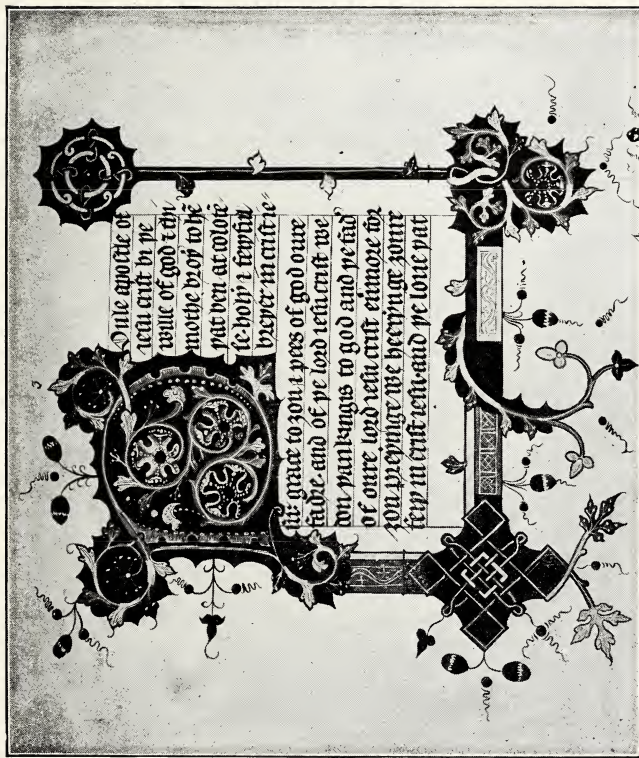 Poule apostle of
iesu crist bi þe
wille of god ⁊ thi
mothe broþ' to hē
þat ben at colose
se holy ⁊ feyþful
breþer in crist ie
su: grace to ȝou ⁊ pees of god oure
fadir and of þe lord iesu crist we
don þankingis to god and þe fad'
of oure lord iesu crist eūmore for
ȝou preiynge we heerynge ȝoure
feiþ in crist iesu and þe loue þat